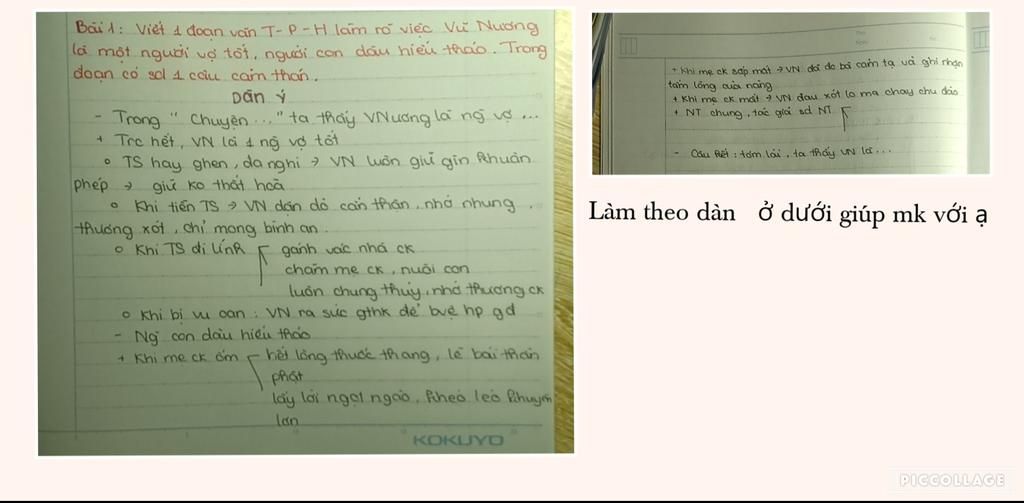 Bài 1: Viết 1 đoạn văn T-P-H làm rõ việc Vũ Nương
là một người vợ tốt, người con dâu hiếu thảo. Trong
đoạn có sd 1 câu cảm thán.
Dàn ý
- Trong "Chuyện..." ta thấy VNương là ng vợ ...
+ Trc hết, VN là 1 ng vợ tốt
o TS hay ghen, đa nghi → VN luôn giữ gìn khuôn
phép → giữ ko thất hoà
o Khi tiễn TS → VN dặn dò cẩn thận, nhớ nhung,
thương xót, chỉ mong bình an.
o Khi TS đi lính gánh vác nhà ck
chăm mẹ ck, nuôi con
luôn chung thuỷ, nhớ thương ck
o Khi bị vu oan: VN ra sức gthk để bvệ hp gđ
- Ng con dâu hiếu thảo
+ Khi mẹ ck ốm hết lòng thuốc thang, lễ bái thần
phật
lấy lời ngọt ngào, khéo léo khuyên
lơn
KOKUYO
+ Khi mẹ ck sắp mất → VN đã đc bà cảm tạ và ghi nhận
tấm lòng của nàng
+ Khi mẹ ck mất → VN đau xót lo ma chay chu đáo
+ NT chung, tác giả sd NT
- Câu kết: tóm lại, ta thấy VN là ...
Làm theo dàn ở dưới giúp mk với ạ
PICCOLLAGE